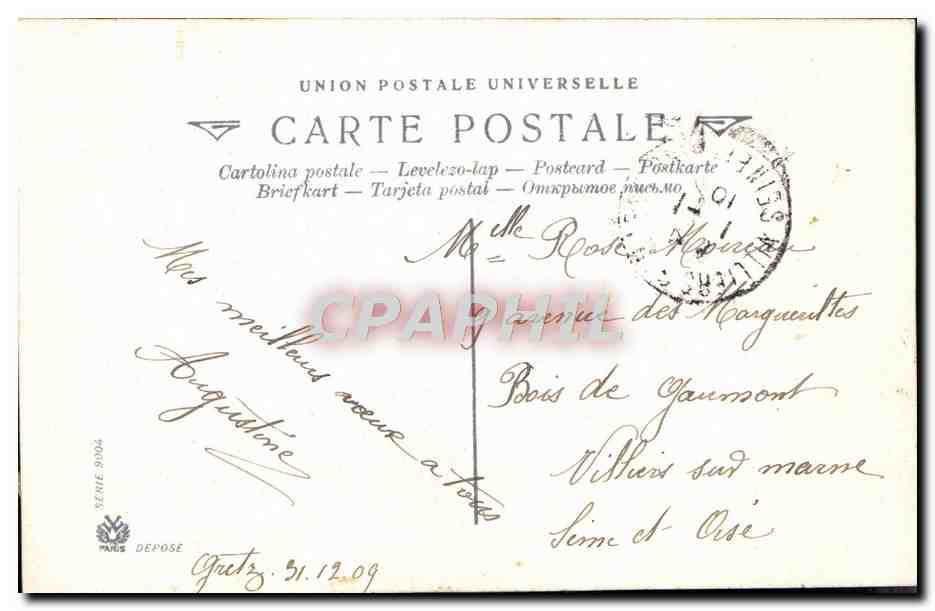 UNION POSTALE UNIVERSELLE
CARTE POSTALE
Cartolina postale — Levelezo-lap — Postcard — Postkarte
Briefkart — Tarjeta postal — Открытое письмо
Mes meilleurs vœux a tous
Augustine
Gretz 31.12.09
Mlle Rose Moireau
9 avenue des Marguerittes
Bois de Gaumont
Villiers sur marne
Seine et Oise
VILLIERS
SEINE
10
CPAPHIL
SERIE 9004
PARIS
DEPOSE